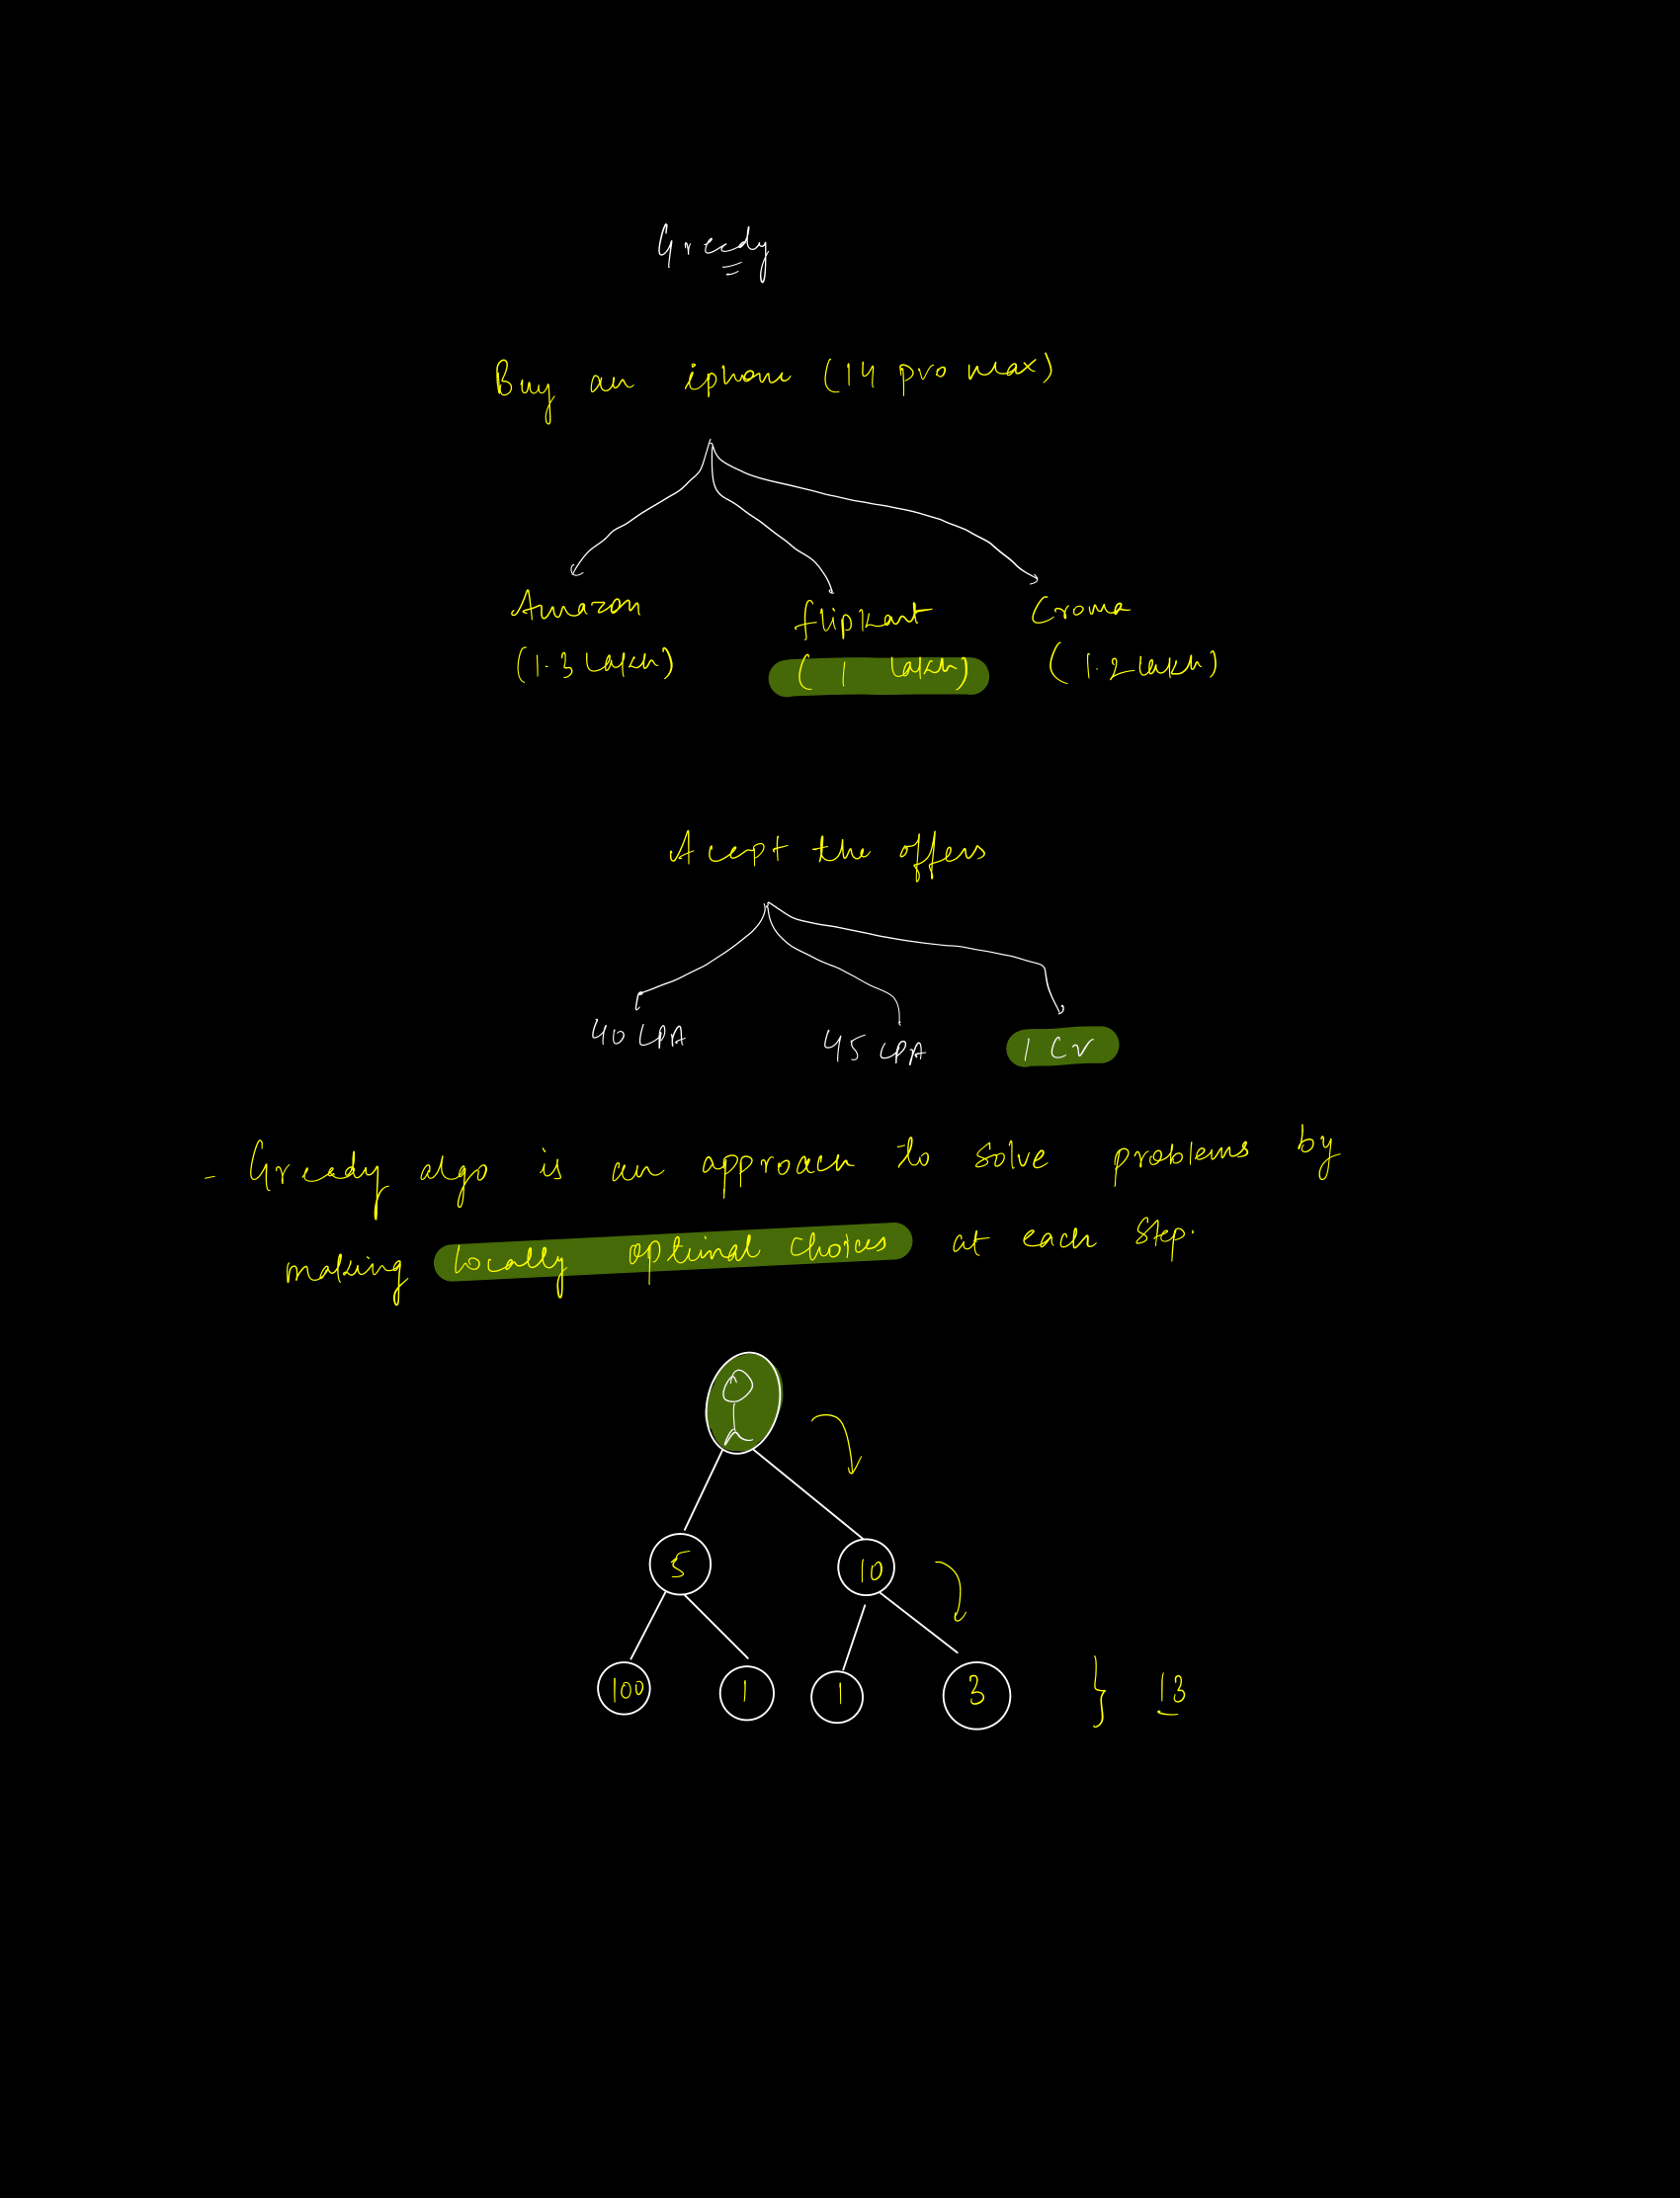 Greedy
Buy an iphone (14 pro max)
Amazon flipkart Croma
(1.3 lakh) (1 lakh) (1.2 lakh)
Acept the offers
40 LPA 45 LPA 1 Cr
- Greedy algo is an approach to solve problems by
making locally optimal choices at each step.
5 10
100 1 1 3 } 13